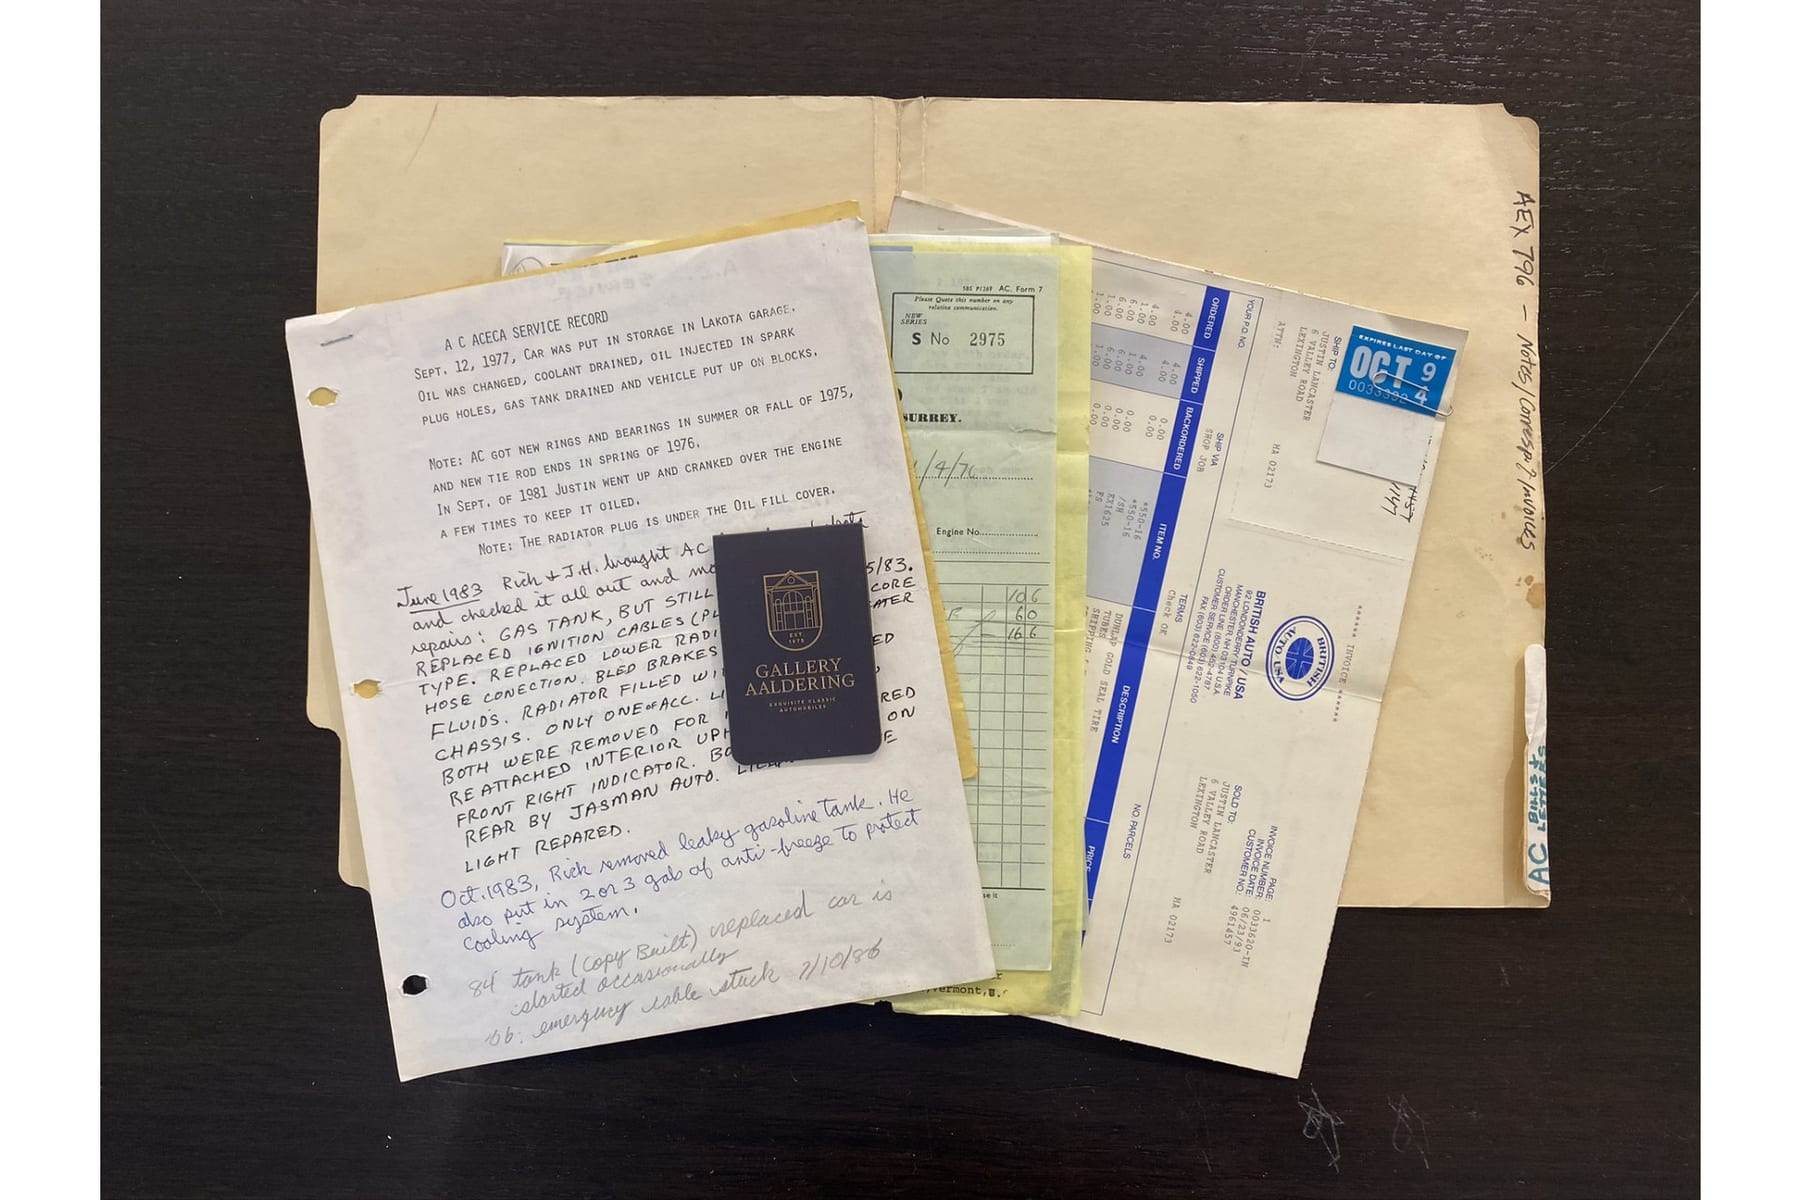 A C ACECA SERVICE RECORD
SEPT. 12, 1977, CAR WAS PUT IN STORAGE IN LAKOTA GARAGE.
OIL WAS CHANGED, COOLANT DRAINED, OIL INJECTED IN SPARK
PLUG HOLES, GAS TANK DRAINED AND VEHICLE PUT UP ON BLOCKS.
NOTE: AC GOT NEW RINGS AND BEARINGS IN SUMMER OR FALL OF 1975,
AND NEW TIE ROD ENDS IN SPRING OF 1976.
IN SEPT. OF 1981 JUSTIN WENT UP AND CRANKED OVER THE ENGINE
A FEW TIMES TO KEEP IT OILED.
NOTE: THE RADIATOR PLUG IS UNDER THE OIL FILL COVER.
June 1983 Rich & J.H. brought AC
and checked it all out and 5/83.
repairs: GAS TANK, BUT STILL CORE
REPLACED IGNITION CABLES
TYPE. REPLACED LOWER
HOSE CONECTION. BLED BRAKES
FLUIDS. RADIATOR FILLED
CHASSIS. ONLY ONE OF ACC.
BOTH WERE REMOVED FOR
REATTACHED INTERIOR ON
FRONT RIGHT INDICATOR.
REAR BY JASMAN AUTO.
LIGHT REPARED.
Oct. 1983, Rick removed leaky gasoline tank. He
also put in 2 or 3 gals of anti-freeze to protect
cooling system.
84 tank (copy Built) replaced car is
started occasionally
emergency cable stuck 7/10/86
GALLERY
AALDERING
EST
1975
EXQUISITE CLASSIC
AUTOMOBILES
585 P1269 AC. Form 7
Please Quote this number on any
relative communication.
NEW
SERIES
S No 2975
SURREY.
Engine No.
106
60
166
Vermont, U.
***** INVOICE *****
BRITISH
AUTO/USA
BRITISH AUTO/USA
92 LONDONDERRY TURNPIKE
MANCHESTER NH 03104 U.S.A.
ORDER LINE (800) 452-4787
CUSTOMER SERVICE (603) 622-1050
FAX (603) 622-0849
PAGE: 1
INVOICE NUMBER: 0033620-IN
INVOICE DATE: 06/23/93
CUSTOMER NO: 4961457
SOLD TO:
JUSTIN LANCASTER
6 VALLEY ROAD
LEXINGTON MA 02173
SHIP TO:
JUSTIN LANCASTER
6 VALLEY ROAD
LEXINGTON MA 02173
ATTN:
YOUR P.O. NO.
SHIP VIA
SHOP JOB
TERMS
Check OR
NO. PARCELS
ORDERED SHIPPED BACKORDERED ITEM NO. DESCRIPTION PRICE
4.00 4.00 0.00 *550-16 DUNLAP GOLD SEAL TIRE
EXPIRES LAST DAY OF
OCT 9
4
AEX 796 - Notes/Corresp?/Invoices
AC BILLS &
LETTERS